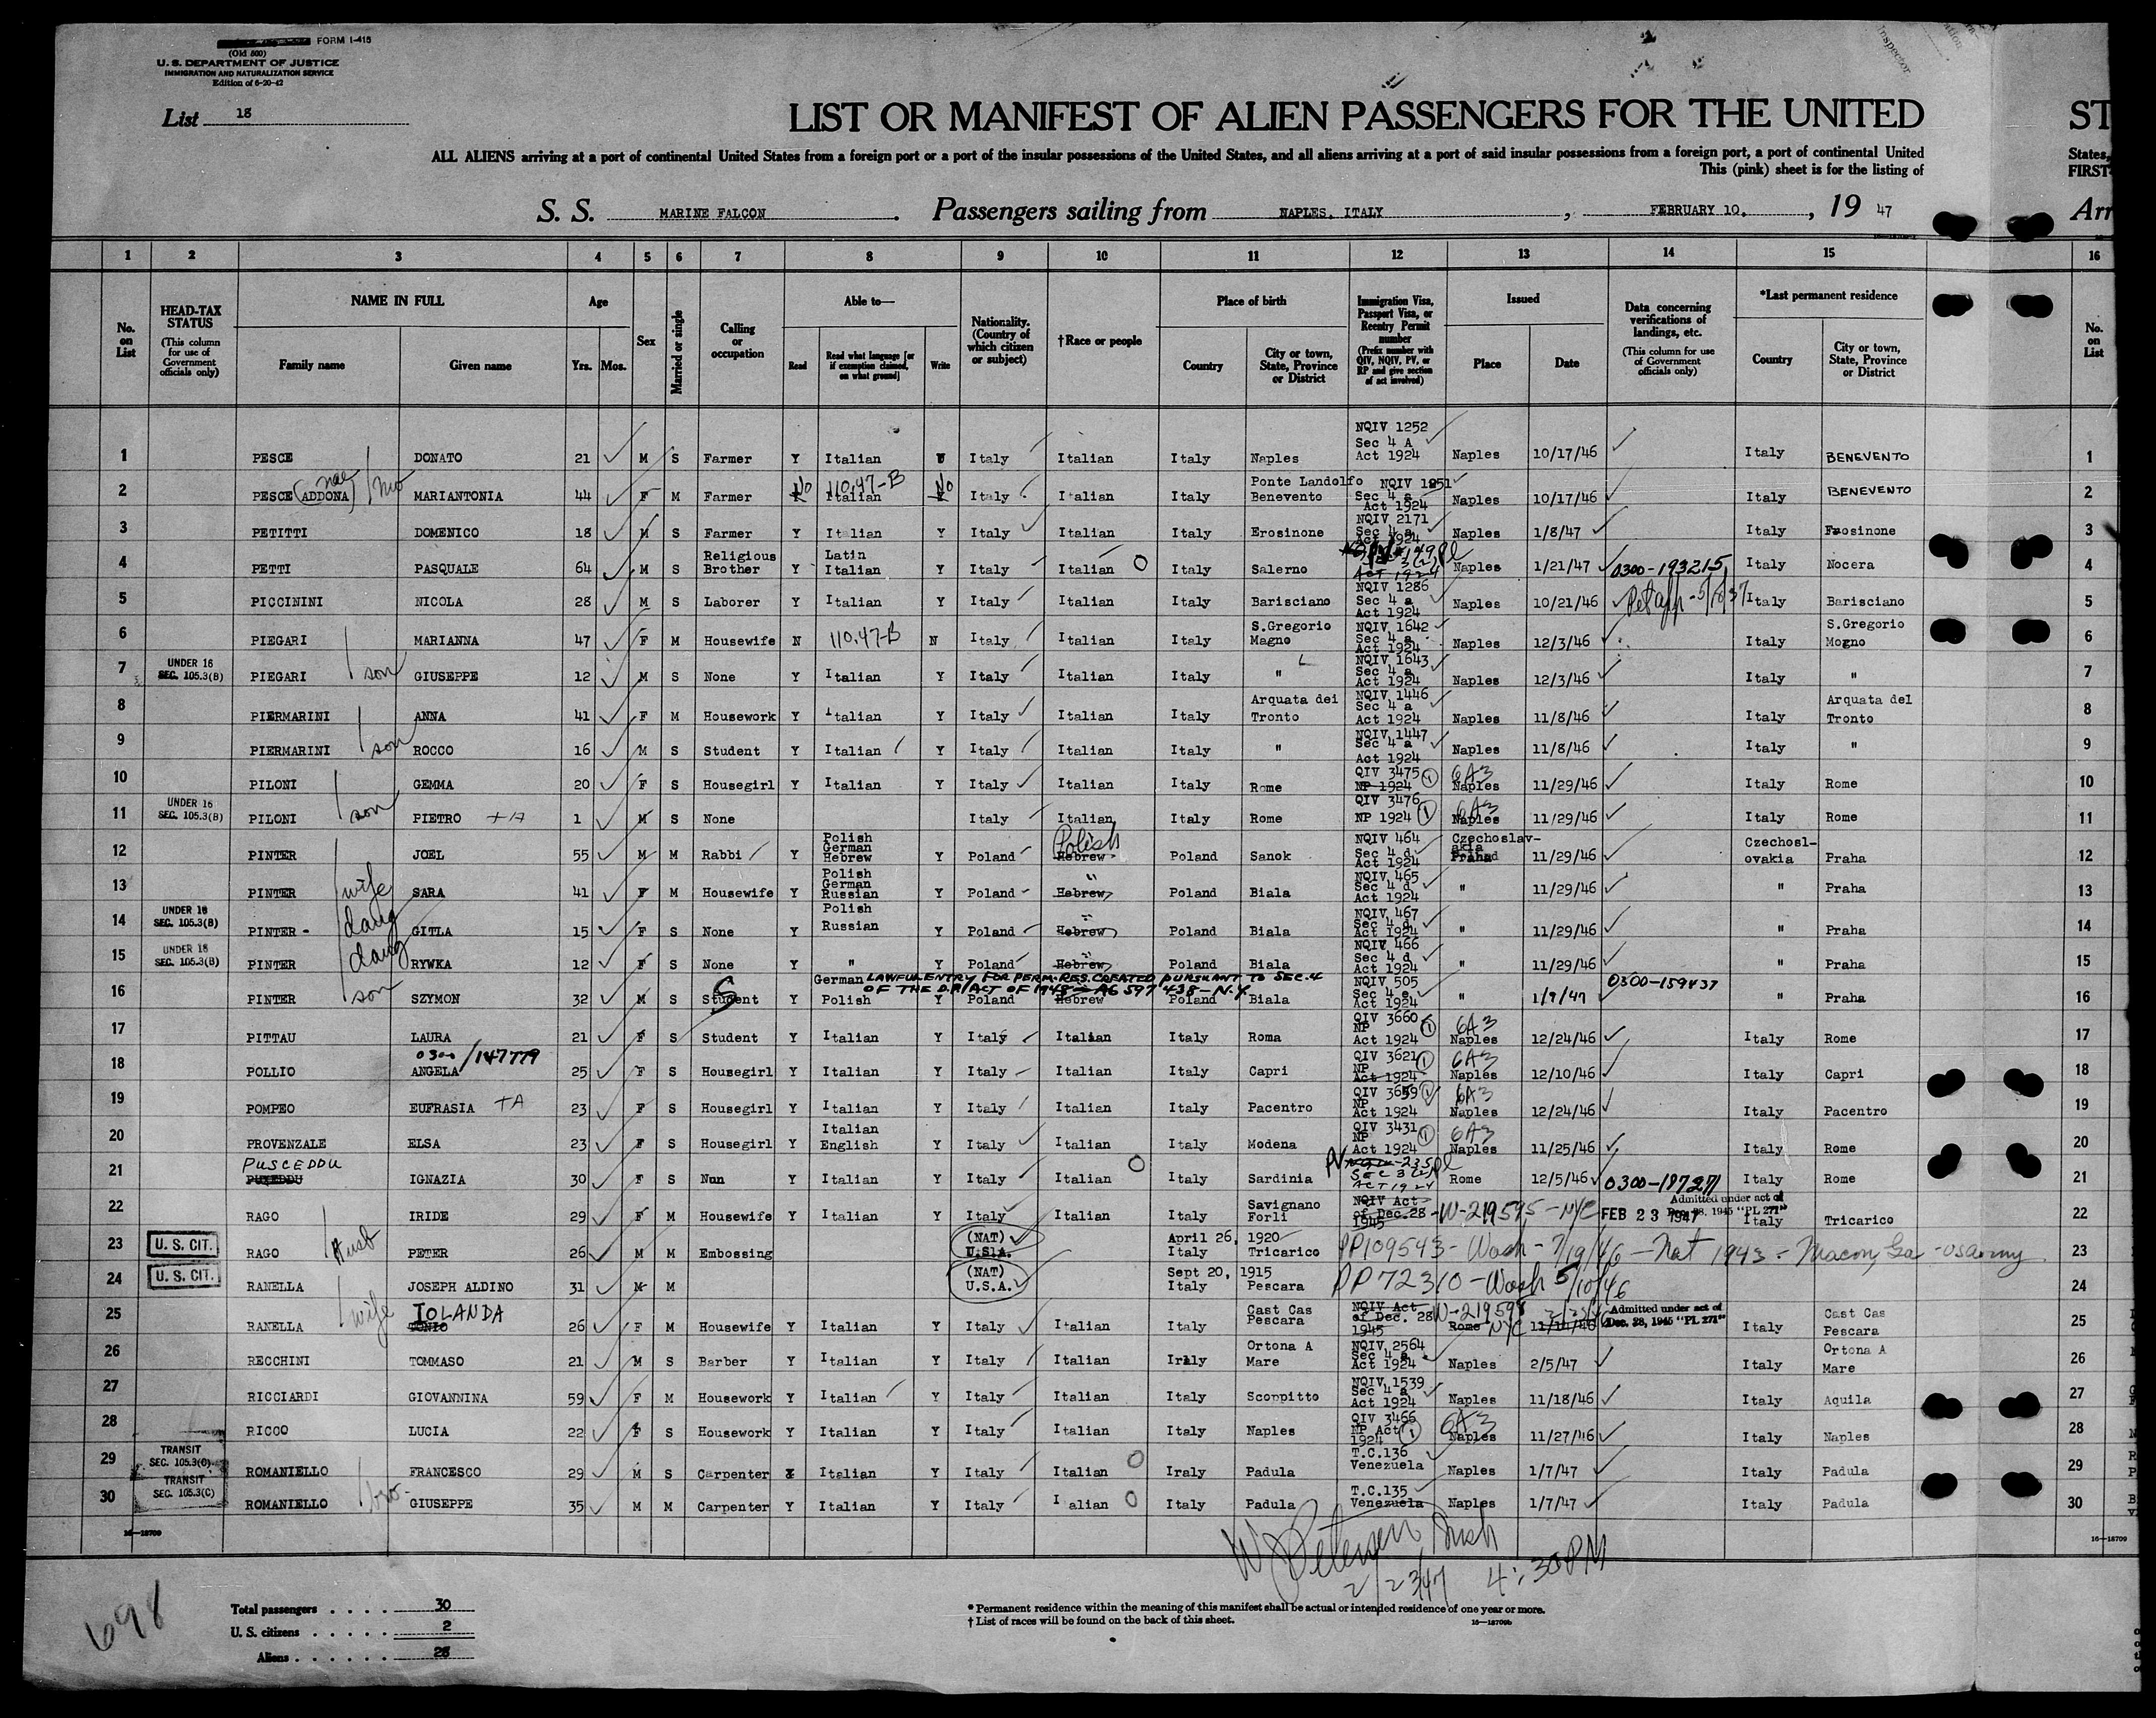 FORM I-415
(Old 500)
U. S. DEPARTMENT OF JUSTICE
IMMIGRATION AND NATURALIZATION SERVICE
Edition of 6-20-42
List 18
LIST OR MANIFEST OF ALIEN PASSENGERS FOR THE UNITED ST
ALL ALIENS arriving at a port of continental United States from a foreign port or a port of the insular possessions of the United States, and all aliens arriving at a port of said insular possessions from a foreign port, a port of continental United States,
This (pink) sheet is for the listing of FIRST
S. S. MARINE FALCON. Passengers sailing from NAPLES, ITALY, FEBRUARY 10, 19 47 Arr
1 2 3 4 5 6 7 8 9 10 11 12 13 14 15 16
No. on List
HEAD-TAX STATUS (This column for use of Government officials only)
NAME IN FULL Family name Given name
Age Yrs. Mos.
Sex
Married or single
Calling or occupation
Able to— Read Read what language [or if exemption claimed, on what ground] Write
Nationality. (Country of which citizen or subject)
†Race or people
Place of birth Country City or town, State, Province or District
Immigration Visa, Passport Visa, or Reentry Permit number (Prefix number with QIV, NQIV, PV, or RP and give section of act involved)
Issued Place Date
Data concerning verifications of landings, etc. (This column for use of Government officials only)
*Last permanent residence Country City or town, State, Province or District
No. on List
1 PESCE DONATO 21 M S Farmer Y Italian Italy Italian Italy Naples NQIV 1252 Sec 4 A Act 1924 Naples 10/17/46 Italy BENEVENTO 1
2 PESCE (nae ADDONA) MARIANTONIA 44 F M Farmer No 110.47-B Italian No Italy Italian Italy Ponte Landolfo Benevento NQIV 1251 Sec 4 a Act 1924 Naples 10/17/46 Italy BENEVENTO 2
3 PETITTI DOMENICO 18 M S Farmer Y Italian Y Italy Italian Italy Erosinone NQIV 2171 Sec 4 a Act 1924 Naples 1/8/47 Italy Frosinone 3
4 PETTI PASQUALE 64 M S Religious Brother Y Latin Italian Y Italy Italian O Italy Salerno 3(2) Act 1924 Naples 1/21/47 0300-193215 Italy Nocera 4
5 PICCININI NICOLA 28 M S Laborer Y Italian Y Italy Italian Italy Barisciano NQIV 1286 Sec 4 a Act 1924 Naples 10/21/46 Italy Barisciano 5
6 PIEGARI MARIANNA 47 F M Housewife N 110.47-B N Italy Italian Italy S.Gregorio Magno NQIV 1642 Sec 4 a Act 1924 Naples 12/3/46 Italy S.Gregorio Mogno 6
7 UNDER 16 SEC. 105.3(B) PIEGARI son GIUSEPPE 12 M S None Y Italian Y Italy Italian Italy " NQIV 1643 Sec 4 a Act 1924 Naples 12/3/46 Italy " 7
8 PIERMARINI ANNA 41 F M Housework Y Italian Y Italy Italian Italy Arquata dei Tronto NQIV 1446 Sec 4 a Act 1924 Naples 11/8/46 Italy Arquata del Tronto 8
9 PIERMARINI son ROCCO 16 M S Student Y Italian Y Italy Italian Italy " NQIV 1447 Sec 4 a Act 1924 Naples 11/8/46 Italy " 9
10 PILONI GEMMA 20 F S Housegirl Y Italian Y Italy Italian Italy Rome QIV 3475 NP 1924 6A3 Naples 11/29/46 Italy Rome 10
11 UNDER 16 SEC. 105.3(B) PILONI son PIETRO 1 M S None Italy Italian Italy Rome QIV 3476 NP 1924 6A3 Naples 11/29/46 Italy Rome 11
12 PINTER JOEL 55 M M Rabbi Y Polish German Hebrew Y Poland Polish Hebrew Poland Sanok NQIV 464 Sec 4 d Act 1924 Czechoslavakia Praha 11/29/46 Czechoslovakia Praha 12
13 PINTER wife SARA 41 F M Housewife Y Polish German Russian Y Poland " Hebrew Poland Biala NQIV 465 Sec 4 d Act 1924 " 11/29/46 " Praha 13
14 UNDER 18 SEC. 105.3(B) PINTER - daug GITLA 15 F S None Y Polish Russian Y Poland " Hebrew Poland Biala NQIV 467 Sec 4 d Act 1924 " 11/29/46 " Praha 14
15 UNDER 18 SEC. 105.3(B) PINTER daug RYWKA 12 F S None Y " Y Poland Hebrew Poland Biala NQIV 466 Sec 4 d Act 1924 " 11/29/46 " Praha 15
LAWFUL ENTRY FOR PERM. RES. CREATED PURSUANT TO SEC. 4
OF THE D.P. ACT OF 1948 - A6 597 438 - N.Y.
16 PINTER son SZYMON 32 M S Student Y German Polish Y Poland Hebrew Poland Biala NQIV 505 Sec 4 e Act 1924 " 1/9/47 0300-159437 " Praha 16
17 PITTAU LAURA 21 F S Student Y Italian Y Italy Italian Italy Roma QIV 3660 NP Act 1924 6A3 Naples 12/24/46 Italy Rome 17
18 POLLIO 0300/147779 ANGELA 25 F S Housegirl Y Italian Y Italy Italian Italy Capri QIV 3621 NP Act 1924 6A3 Naples 12/10/46 Italy Capri 18
19 POMPEO EUFRASIA 23 F S Housegirl Y Italian Y Italy Italian Italy Pacentro QIV 3659 NP Act 1924 6A3 Naples 12/24/46 Italy Pacentro 19
20 PROVENZALE ELSA 23 F S Housegirl Y Italian English Y Italy Italian Italy Modena QIV 3431 NP Act 1924 6A3 Naples 11/25/46 Italy Rome 20
21 PUSCEDDU IGNAZIA 30 F S Nun Y Italian Y Italy Italian O Italy Sardinia PV SEC 3(2) ACT 1924 Rome 12/5/46 Italy Rome 21
22 RAGO IRIDE 29 F M Housewife Y Italian Y Italy Italian Italy Savignano Forli NQIV Act of Dec. 28 1945 W-219595-NYC FEB 23 1947 Admitted under act of Dec. 28, 1945 "PL 271" Italy Tricarico 22
23 U. S. CIT. RAGO Husb PETER 26 M M Embossing (NAT) U.S.A. April 26, 1920 Italy Tricarico PP109543 - Wash - 7/19/46 - Nat 1943 - Macon, Ga - US army 23
24 U. S. CIT. RANELLA JOSEPH ALDINO 31 M M (NAT) U.S.A. Sept 20, 1915 Italy Pescara PP 72310 - Wash 5/10/46 24
25 RANELLA wife IOLANDA 26 F M Housewife Y Italian Y Italy Italian Italy Cast Cas Pescara NQIV Act of Dec. 28 1945 W-219598 Rome NYC Admitted under act of Dec. 28, 1945 "PL 271" Italy Cast Cas Pescara 25
26 RECCHINI TOMMASO 21 M S Barber Y Italian Y Italy Italian Iraly Ortona A Mare NQIV 2564 Sec 4 a Act 1924 Naples 2/5/47 Italy Ortona A Mare 26
27 RICCIARDI GIOVANNINA 59 F M Housework Y Italian Y Italy Italian Italy Scoppitto NQIV 1539 Sec 4 a Act 1924 Naples 11/18/46 Italy Aquila 27
28 RICCO LUCIA 22 F S Housework Y Italian Y Italy Italian Italy Naples QIV 3466 NP Act 1924 6A3 Naples 11/27/46 Italy Naples 28
29 TRANSIT SEC. 105.3(C) ROMANIELLO FRANCESCO 29 M S Carpenter Y Italian Y Italy Italian O Iraly Padula T.C.136 Venezuela Naples 1/7/47 Italy Padula 29
30 TRANSIT SEC. 105.3(C) ROMANIELLO bro- GIUSEPPE 35 M M Carpenter Y Italian Y Italy I alian O Italy Padula T.C.135 Venezuela Naples 1/7/47 Italy Padula 30
16—18709
16—18709
W Petersen Insp
2/23/47 4:30 PM
698
Total passengers . . . . 30
U. S. citizens . . . . . 2
Aliens . . . . . . 28
* Permanent residence within the meaning of this manifest shall be actual or intended residence of one year or more.
† List of races will be found on the back of this sheet.